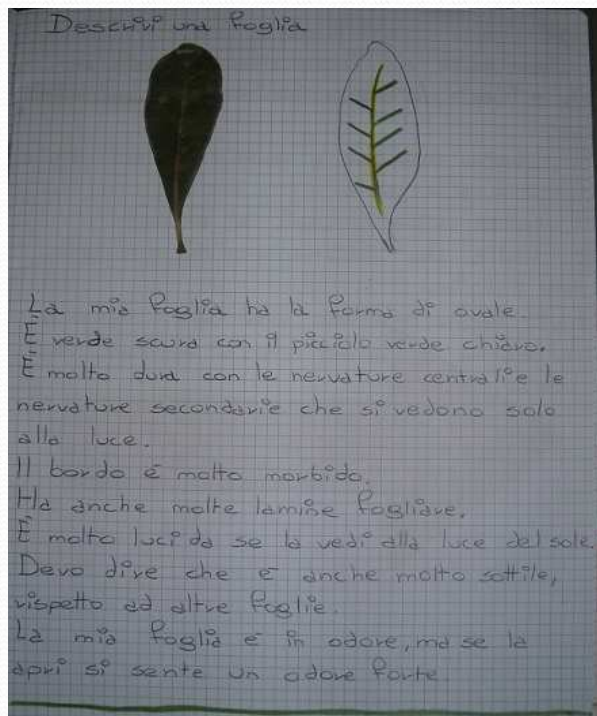 Descrivi una foglia
La mia foglia ha la forma di ovale.
È verde scura con il picciolo verde chiaro.
È molto dura con le nervature centrali e le
nervature secondarie che si vedono solo
alla luce.
Il bordo è molto morbido.
Ha anche molte lamine fogliare.
È molto lucida se la vedi alla luce del sole.
Devo dire che è anche molto sottile,
rispetto ad altre foglie.
La mia foglia è in odore, ma se la
apri si sente un odore forte.